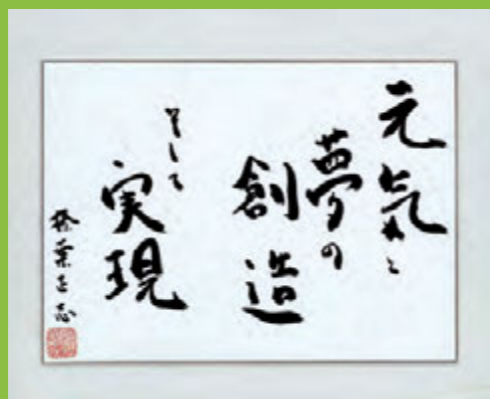 元気と
夢の
創造
そして
実現
葉正志